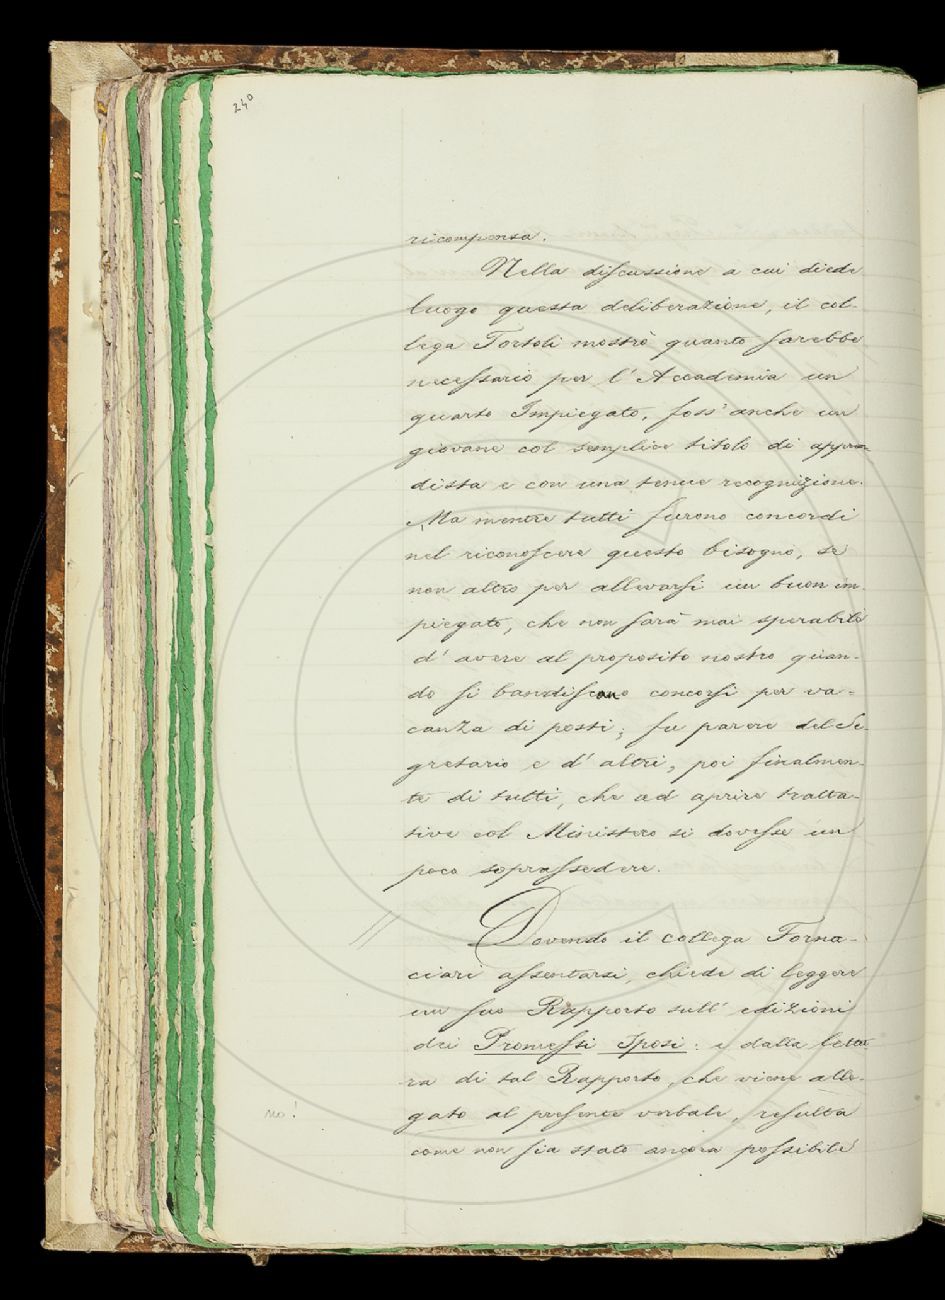 240
ricompensa.
Nella discussione a cui diede
luogo questa deliberazione, il col-
lega Tortoli mostrò quanto sarebbe
necessario per l'Accademia un
quarto Impiegato, foss'anche un
giovane col semplice titolo di appren-
dista e con una tenue recognizione.
Ma mentre tutti furono concordi
nel riconoscere questo bisogno, se
non altro per allevarsi un buon im-
piegato, che non sarà mai sperabile
d'avere al proposito nostro quan-
do si bandiscano concorsi per va-
canza di posti; fu parere del Se-
gretario e d'altri, poi finalmen-
te di tutti, che ad aprire tratta-
tive col Ministero si dovesse un
poco soprassedere.
// Dovendo il collega Forna-
ciari assentarsi, chiede di leggere
un suo Rapporto sull'edizioni
dei Promessi Sposi: e dalla lettu-
ra di tal Rapporto, che viene alle-
no! gato al presente verbale, resulta
come non sia stato ancora possibile